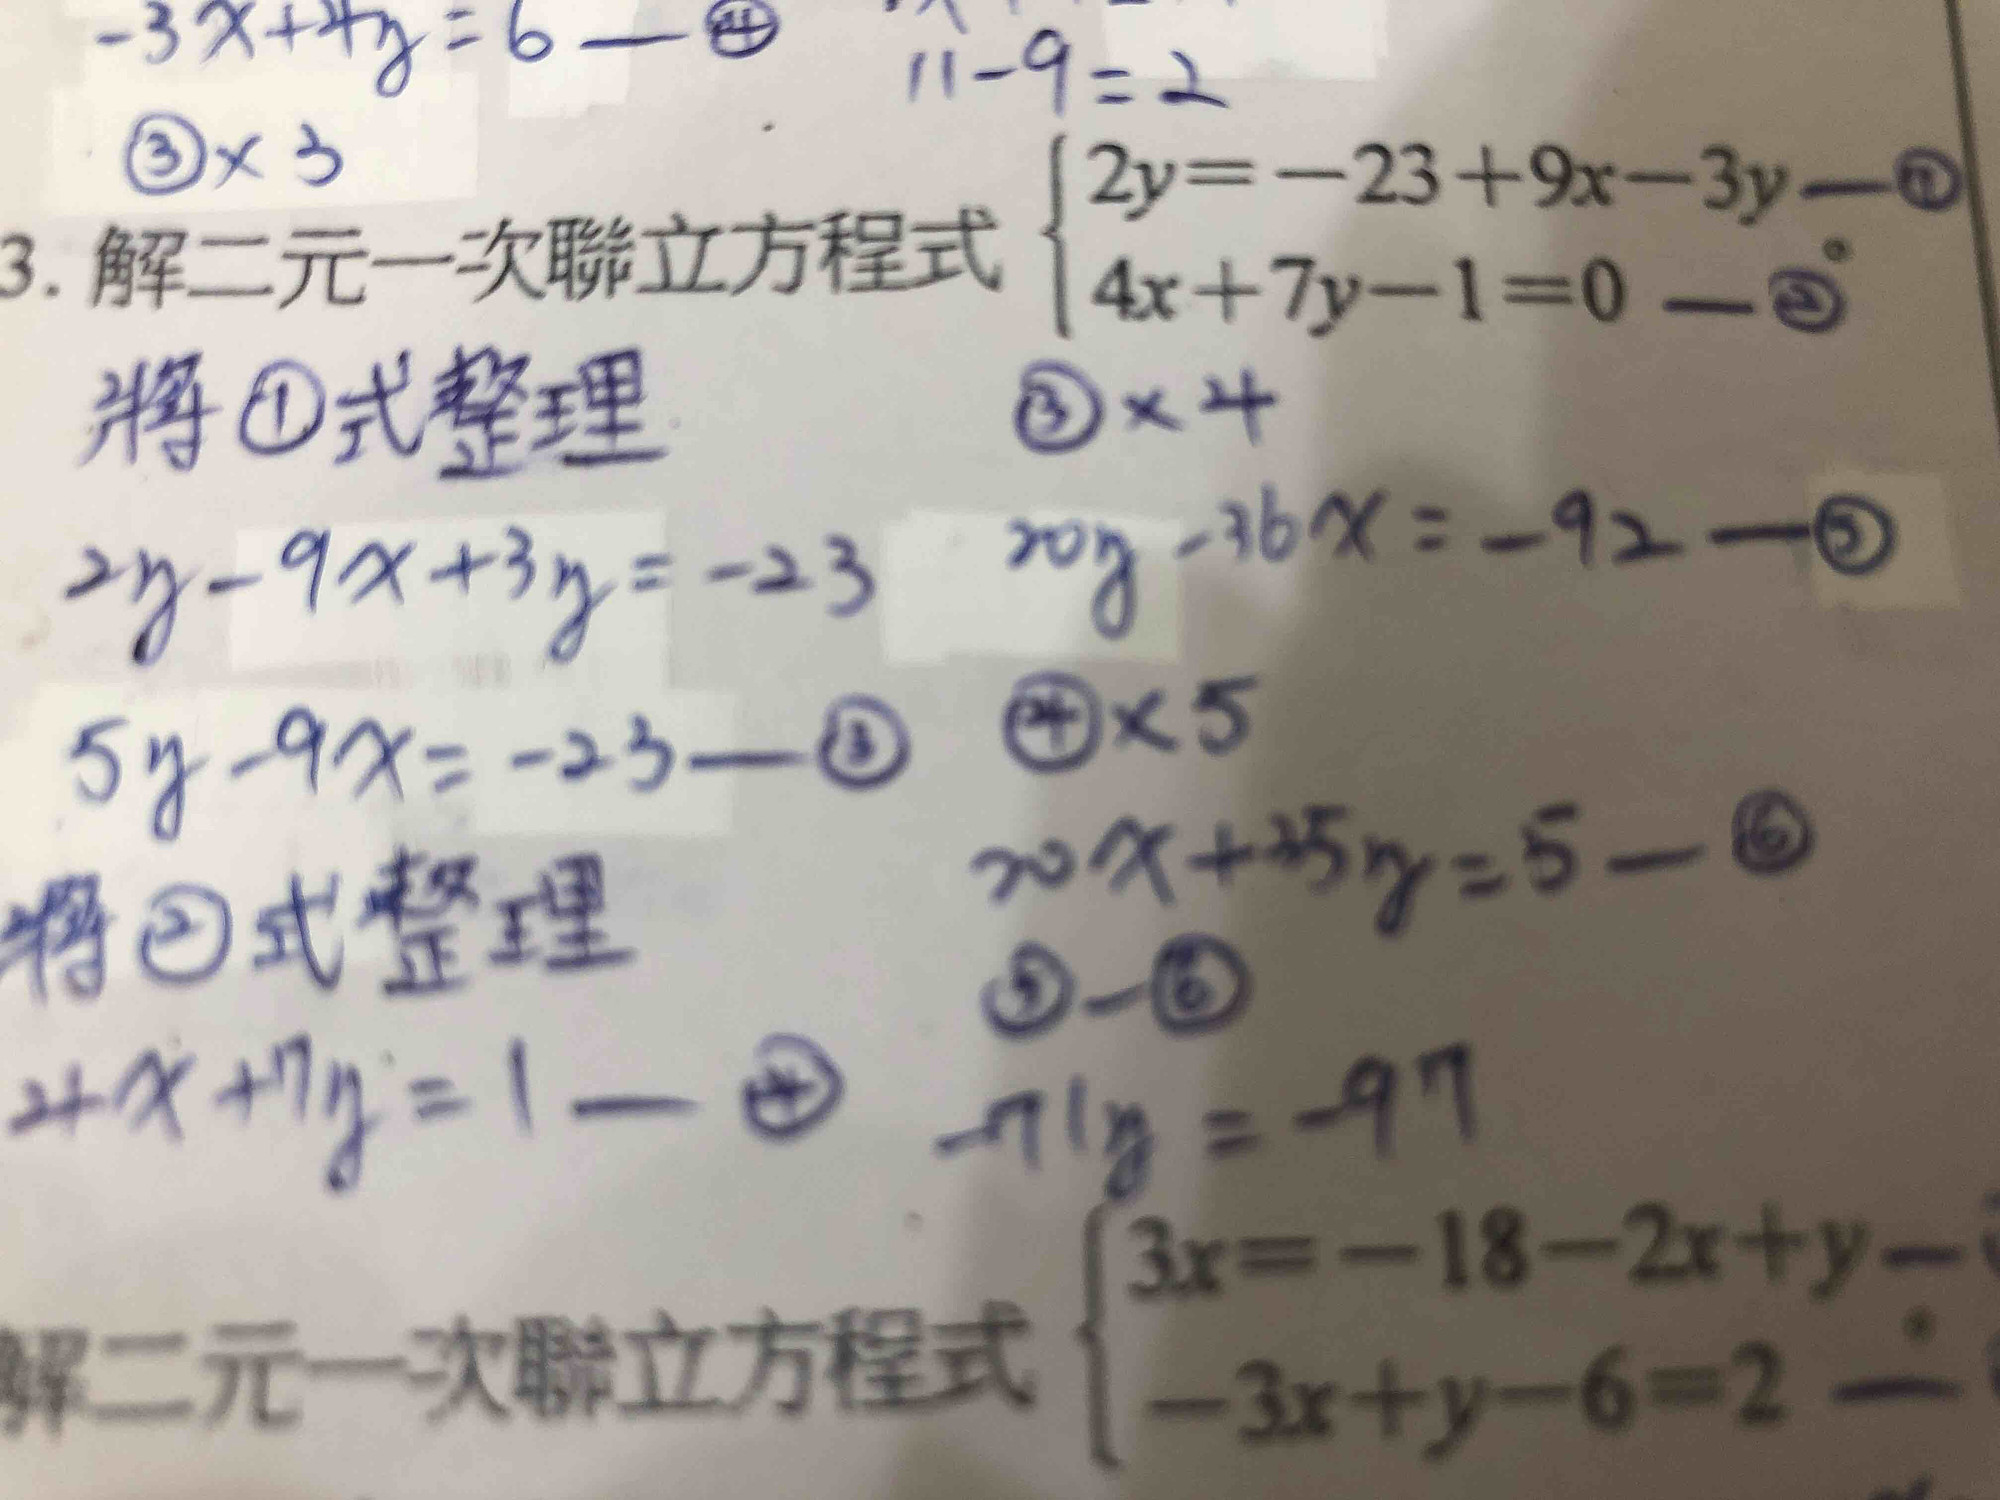 -3x+4y=6—④
11-9=2
③×3
3. 解二元一次聯立方程式 { 2y=-23+9x-3y—①
4x+7y-1=0 —② 。
將①式整理
2y-9x+3y=-23
5y-9x=-23—③
將②式整理
4x+7y=1—④
③×4
20y-36x=-92—⑤
④×5
20x+35y=5—⑥
⑤-⑥
-71y=-97
解二元一次聯立方程式 { 3x=-18-2x+y—
-3x+y-6=2 — 。